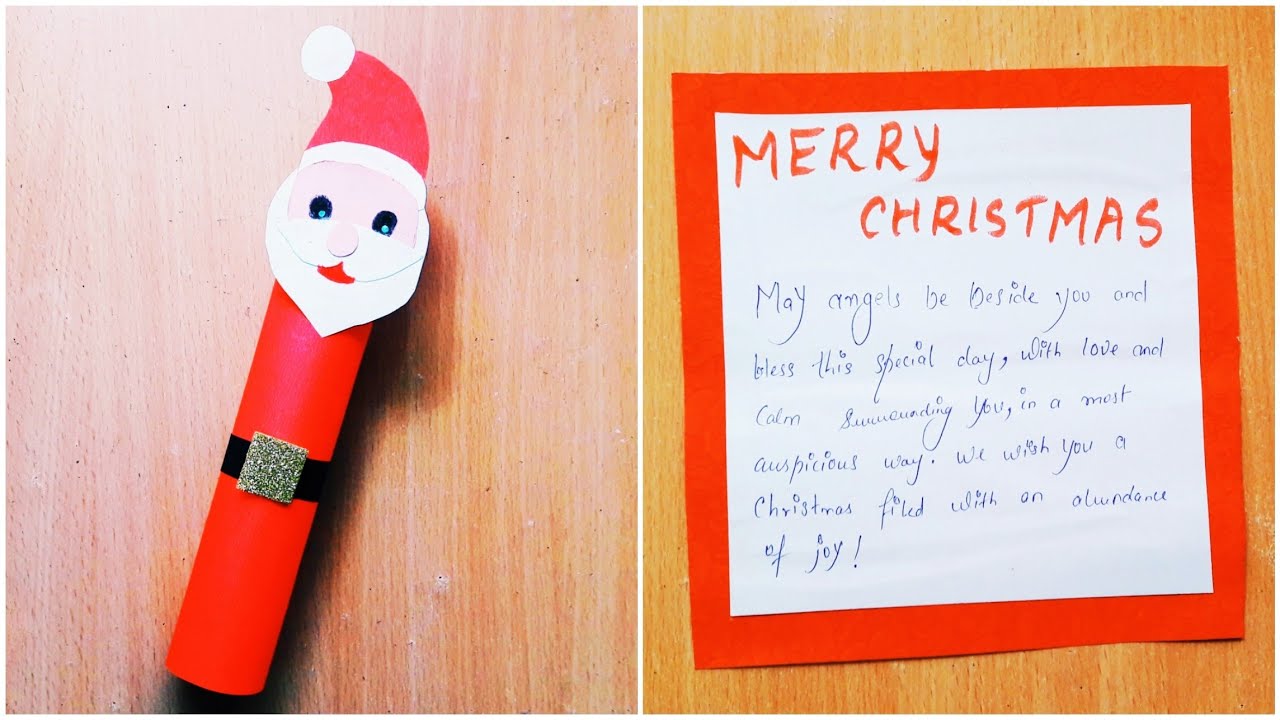 MERRY
CHRISTMAS
May angels be beside you and
bless this special day, with love and
Calm Surrounding You, in a most
auspicious way. We wish you a
Christmas filed with an abundance
of joy!